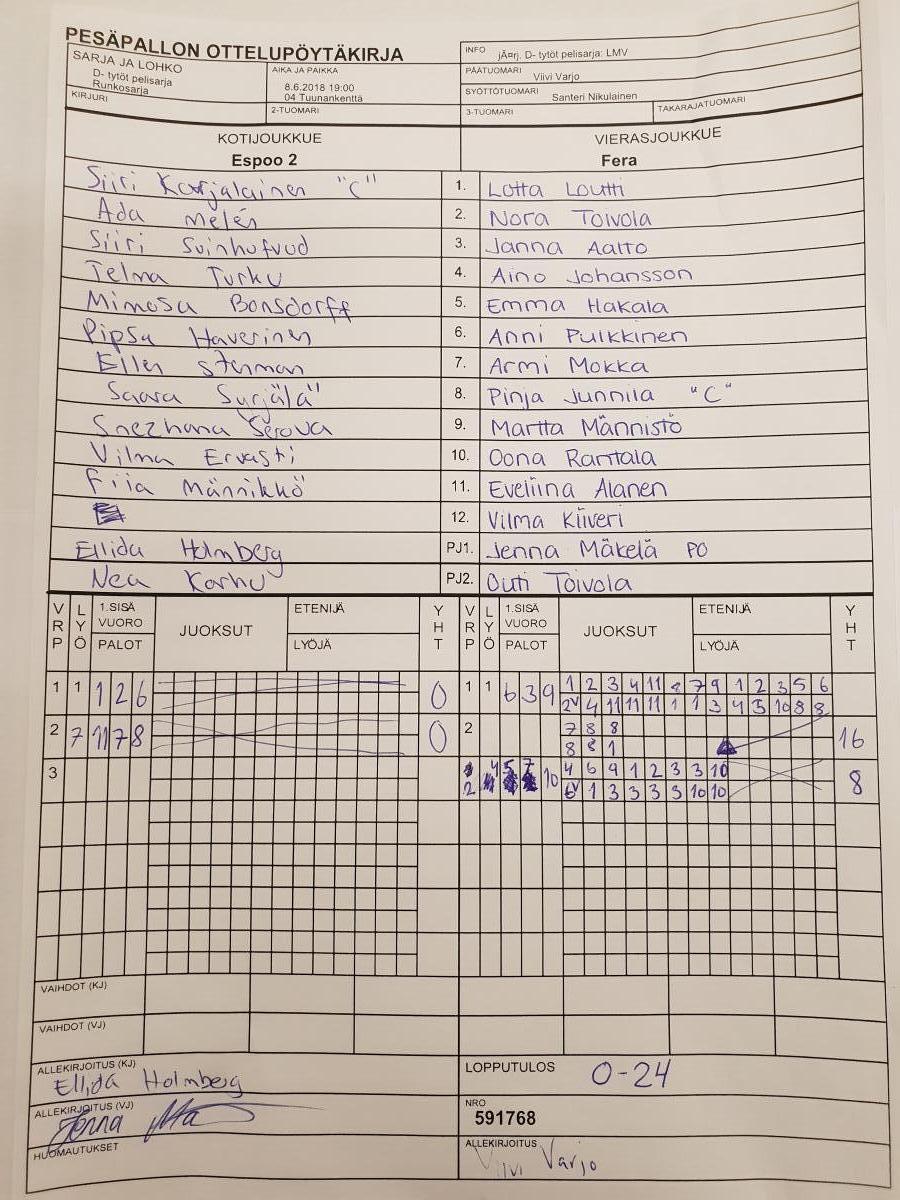 PESÄPALLON OTTELUPÖYTÄKIRJA
SARJA JA LOHKO
D- tytöt pelisarja
Runkosarja
KIRJURI
AIKA JA PAIKKA
8.6.2018 19:00
04 Tuunankenttä
2-TUOMARI
INFO jÃ¤rj. D- tytöt pelisarja: LMV
PÄÄTUOMARI Viivi Varjo
SYÖTTÖTUOMARI Santeri Nikulainen
3-TUOMARI TAKARAJATUOMARI
KOTIJOUKKUE VIERASJOUKKUE
Espoo 2 Fera
Siiri Karjalainen "C" 1. Lotta Loutti
Ada Melén 2. Nora Toivola
Siiri Svinhufvud 3. Janna Aalto
Telma Turku 4. Aino Johansson
Mimosa Bonsdorff 5. Emma Hakala
Pipsa Haverinen 6. Anni Pulkkinen
Ellen Stenman 7. Armi Mokka
Saara Syrjälä 8. Pinja Junnila "C"
Snezhana Serova 9. Martta Männistö
Vilma Ervasti 10. Oona Rantala
Fiia Männikkö 11. Eveliina Alanen
12. Vilma Kiiveri
Ellida Holmberg PJ1. Jenna Mäkelä PO
Nea Karhu PJ2. Outi Toivola
VRP LYÖ 1.SISÄ VUORO PALOT JUOKSUT ETENIJÄ LYÖJÄ YHT VRP LYÖ 1.SISÄ VUORO PALOT JUOKSUT ETENIJÄ LYÖJÄ YHT
1 1 1 2 6 0 1 1 6 3 9 1 2 3 4 11 8 7 9 1 2 3 5 6
2V 4 11 11 11 1 1 3 4 5 10 8 8
2 7 11 7 8 0 2 7 8 8 16
8 8 1
3 2 4 5 7 10 4 6 9 1 2 3 3 10 8
6V 1 3 3 3 3 10 10
VAIHDOT (KJ)
VAIHDOT (VJ)
ALLEKIRJOITUS (KJ)
Ellida Holmberg
LOPPUTULOS 0-24
ALLEKIRJOITUS (VJ)
Jenna
NRO
591768
HUOMAUTUKSET
ALLEKIRJOITUS
Viivi Varjo